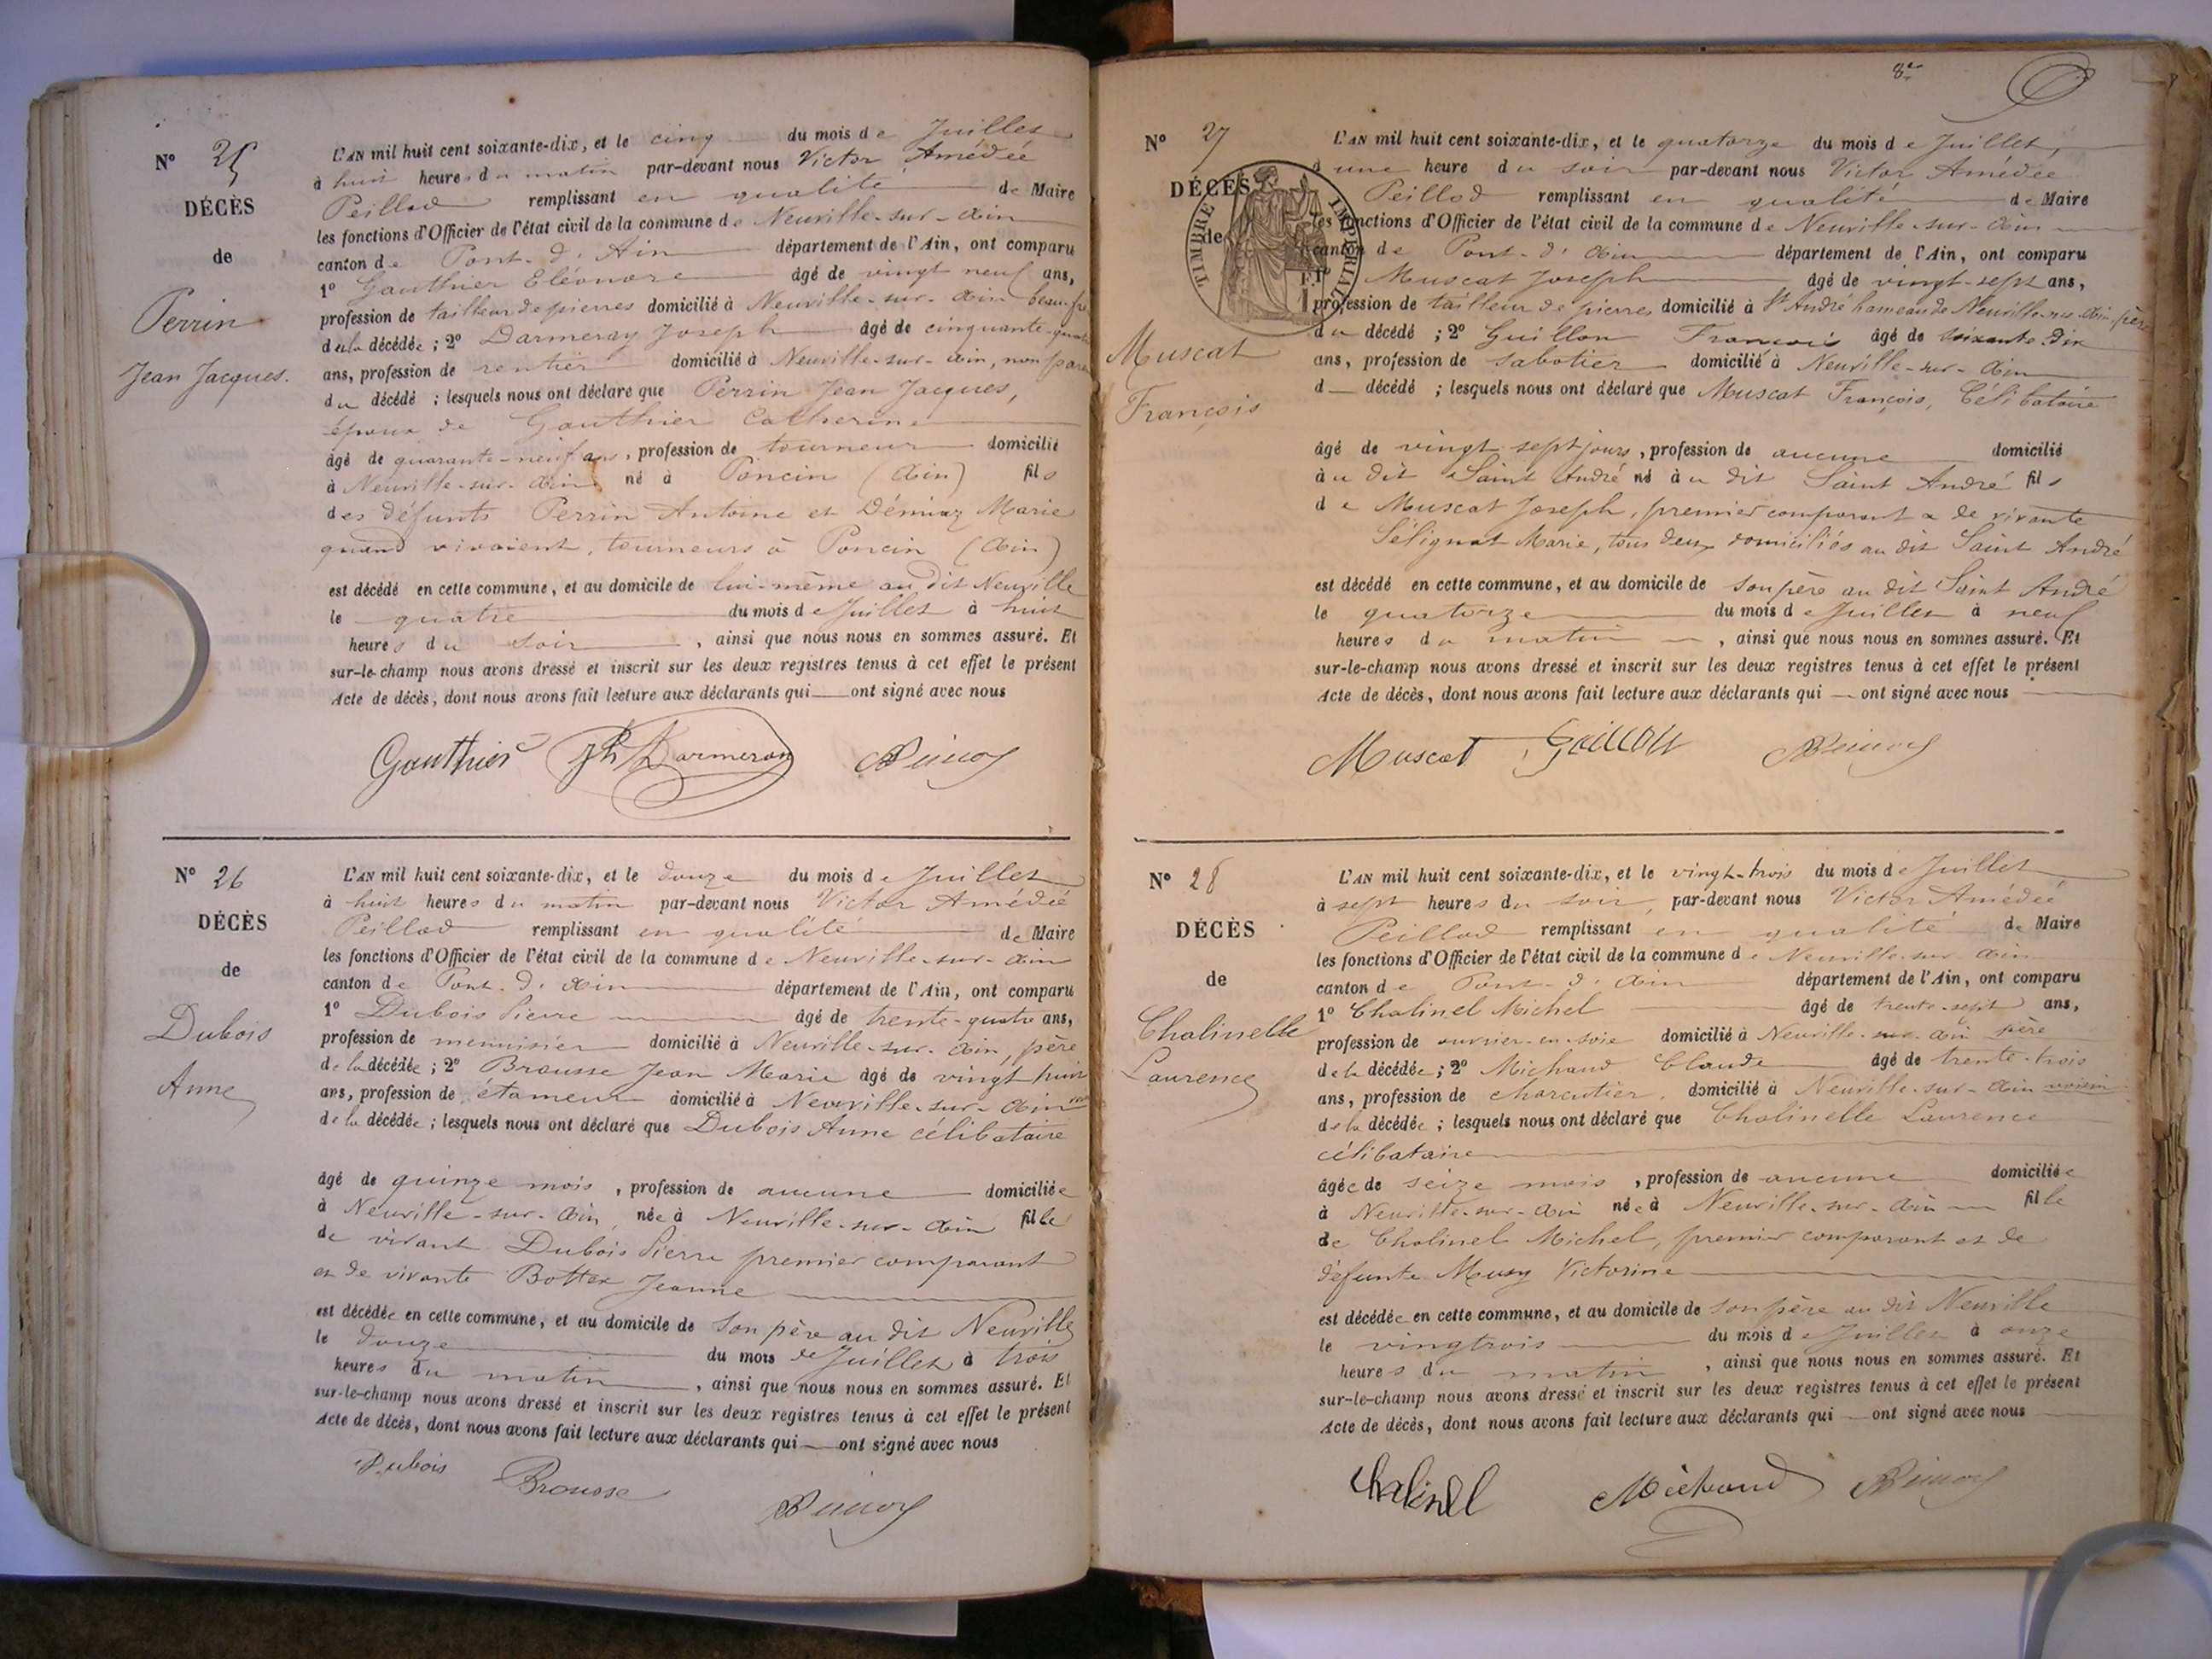 N° 25
DÉCÈS
de
Perrin
Jean Jacques.
L'AN mil huit cent soixante-dix, et le cinq du mois de Juillet
à huit heures du matin par-devant nous Victor Amédée
Peillod remplissant en qualité de Maire
les fonctions d'Officier de l'état civil de la commune de Neuville-sur-Ain
canton de Pont-d'Ain département de l'Ain, ont comparu
1° Gauthier Eléonore âgé de vingt neuf ans,
profession de tailleur de pierres domicilié à Neuville-sur-Ain beau-fr
de la décédée ; 2° Darmeray Joseph âgé de cinquante-quatre
ans, profession de rentier domicilié à Neuville-sur-Ain, non par
du décédé ; lesquels nous ont déclaré que Perrin Jean Jacques,
époux de Gauthier Catherine
âgé de quarante-neuf ans, profession de tourneur domicilié
à Neuville-sur-Ain né à Poncin (Ain) fils
des défunts Perrin Antoine et Démiaz Marie
quand vivaient, tourneurs à Poncin (Ain)
est décédé en cette commune, et au domicile de lui-même au dit Neuville
le quatre du mois de Juillet à huit
heures du soir , ainsi que nous nous en sommes assuré. Et
sur-le-champ nous avons dressé et inscrit sur les deux registres tenus à cet effet le présent
Acte de décès, dont nous avons fait lecture aux déclarants qui ont signé avec nous
Gauthier Jh Darmeray
N° 26
DÉCÈS
de
Dubois
Anne
L'AN mil huit cent soixante-dix, et le douze du mois de Juillet
à huit heures du matin par-devant nous Victor Amédée
Peillod remplissant en qualité de Maire
les fonctions d'Officier de l'état civil de la commune de Neuville-sur-Ain
canton de Pont-d'Ain département de l'Ain, ont comparu
1° Dubois Pierre âgé de trente-quatre ans,
profession de menuisier domicilié à Neuville-sur-Ain, père
de la décédée ; 2° Brousse Jean Marie âgé de vingt huit
ans, profession de étameur domicilié à Neuville-sur-Ain
de la décédée ; lesquels nous ont déclaré que Dubois Anne célibataire
âgé de quinze mois , profession de aucune domiciliée
à Neuville-sur-Ain née à Neuville-sur-Ain fille
de vivant Dubois Pierre premier comparant
et de vivante Bottex Jeanne
est décédée en cette commune, et au domicile de son père au dit Neuville
le douze du mois de Juillet à trois
heures du matin , ainsi que nous nous en sommes assuré. Et
sur-le-champ nous avons dressé et inscrit sur les deux registres tenus à cet effet le présent
Acte de décès, dont nous avons fait lecture aux déclarants qui ont signé avec nous
Dubois Brousse
8e
N° 27
DÉCÈS
de
TIMBRE IMPERIAL
Muscat
François
L'AN mil huit cent soixante-dix, et le quatorze du mois de Juillet,
à une heure du soir par-devant nous Victor Amédée
Peillod remplissant en qualité de Maire
les fonctions d'Officier de l'état civil de la commune de Neuville-sur-Ain
canton de Pont-d'Ain département de l'Ain, ont comparu
1° Muscat Joseph âgé de vingt-sept ans,
profession de tailleur de pierres domicilié à St André hameau de Neuville-sur-Ain père
du décédé ; 2° Guillon François âgé de soixante dix
ans, profession de sabotier domicilié à Neuville-sur-Ain
d décédé ; lesquels nous ont déclaré que Muscat François, Célibataire
âgé de vingt sept jours, profession de aucune domicilié
à u dit Saint André né à u dit Saint André fils
de Muscat Joseph, premier comparant & de vivante
Sélignat Marie, tous deux domiciliés au dit Saint André
est décédé en cette commune, et au domicile de son père au dit Saint André
le quatorze du mois de Juillet à neuf
heures du matin , ainsi que nous nous en sommes assuré. Et
sur-le-champ nous avons dressé et inscrit sur les deux registres tenus à cet effet le présent
Acte de décès, dont nous avons fait lecture aux déclarants qui ont signé avec nous
Muscat Guillon
N° 28
DÉCÈS
de
Chalinelle
Laurence
L'AN mil huit cent soixante-dix, et le vingt-trois du mois de Juillet
à sept heures du soir, par-devant nous Victor Amédée
Peillod remplissant en qualité de Maire
les fonctions d'Officier de l'état civil de la commune de Neuville-sur-Ain
canton de Pont-d'Ain département de l'Ain, ont comparu
1° Chalinel Michel âgé de trente-sept ans,
profession de ouvrier-en-soie domicilié à Neuville-sur-Ain père
de la décédée ; 2° Michaud Claude âgé de trente-trois
ans, profession de charcutier, domicilié à Neuville-sur-Ain voisin
de la décédée ; lesquels nous ont déclaré que Chalinelle Laurence
célibataire
âgée de seize mois , profession de aucune domiciliée
à Neuville-sur-Ain née à Neuville-sur-Ain fille
de Chalinel Michel, premier comparant et de
défunte Musy Victorine
est décédée en cette commune, et au domicile de son père au dit Neuville
le vingtrois du mois de Juillet à onze
heures du matin , ainsi que nous nous en sommes assuré. Et
sur-le-champ nous avons dressé et inscrit sur les deux registres tenus à cet effet le présent
Acte de décès, dont nous avons fait lecture aux déclarants qui ont signé avec nous
Chalinel Michaud